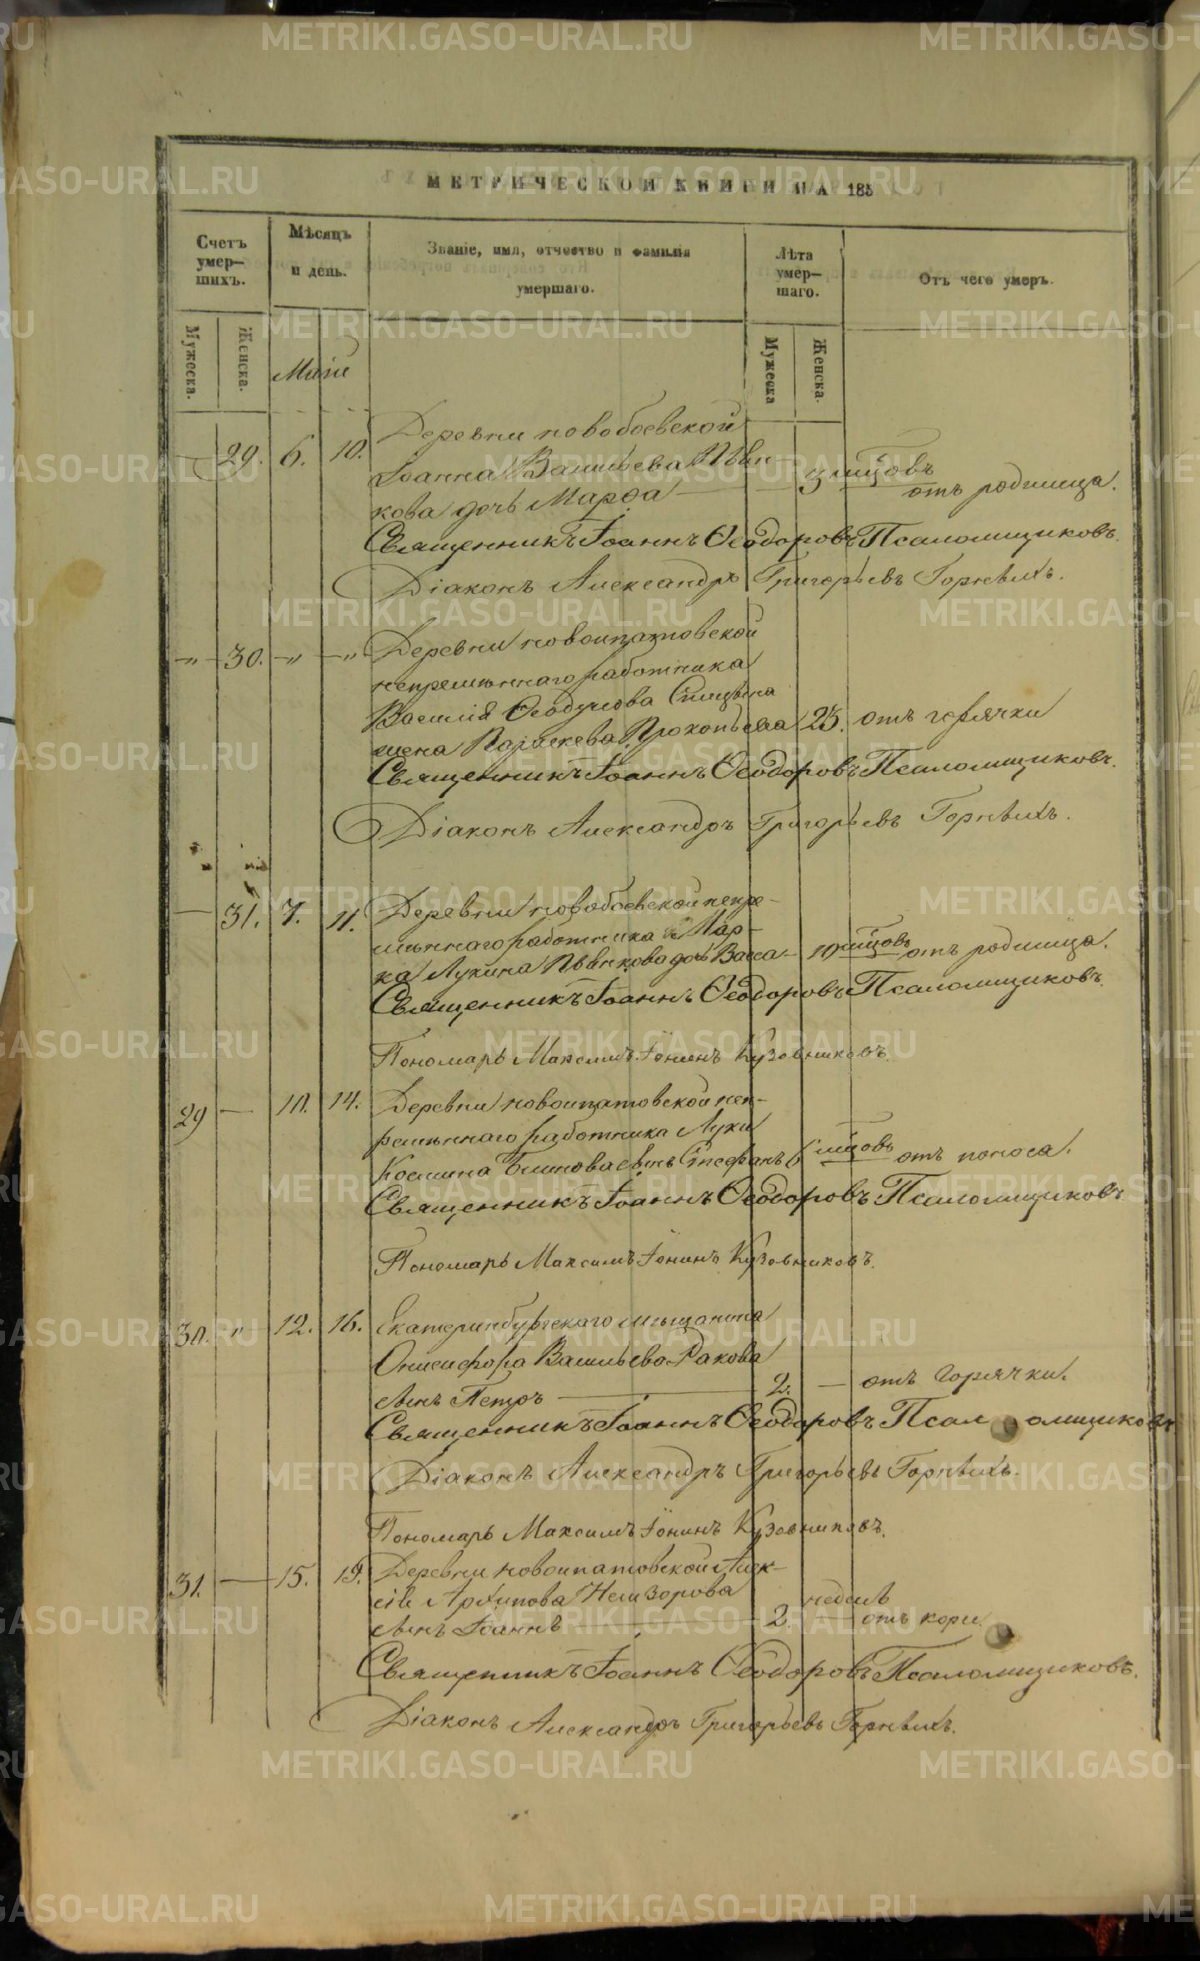 МЕТРИЧЕСКОЙ КНИГИ НА 185
Счетъ умер-шихъ.
Мѣсяцъ и день.
Званіе, имя, отчество и фамилія умершаго.
Лѣта умер-шаго.
Отъ чего умеръ.
Мужеска.
Женска.
Маій
Мужеска
Женска.
Деревни новобоевской
29. 6. 10. Іоанна Васильева Пьян-
кова дочь Марѳа 3 мѣсцовъ отъ родимца.
Священникъ Іоаннъ Ѳеодоровъ Псаломщиковъ.
Діаконъ Александръ Григорьевъ Горныхъ.
" 30. " " Деревни новоипатовской
непремѣннаго работника
Василія Ѳеодулова Спицына
жена Параскева Прокопьева 23. отъ горячки
Священникъ Іоаннъ Ѳеодоровъ Псаломщиковъ.
Діаконъ Александръ Григорьевъ Горныхъ.
31. 7. 11. Деревни новобоевской непре-
мѣннаго работника Мар-
ка Лукина Пьянкова дочь Васса 10 мѣсцовъ отъ родимца.
Священникъ Іоаннъ Ѳеодоровъ Псаломщиковъ.
Пономарь Максимъ Іонинъ Кузовниковъ.
29 10. 14. Деревни новоипатовской неп-
ремѣннаго работника Луки
Космина Блинова сынъ Стефанъ 6 мѣсцовъ отъ поноса.
Священникъ Іоаннъ Ѳеодоровъ Псаломщиковъ
Пономарь Максимъ Іонинъ Кузовниковъ.
30. " 12. 16. Екатеринбургскаго мѣщанина
Онисифора Васильева Ракова
сынъ Петръ 2. отъ горячки.
Священникъ Іоаннъ Ѳеодоровъ Псаломщиковъ.
Діаконъ Александръ Григорьевъ Горныхъ.
Пономарь Максимъ Іонинъ Кузовниковъ.
31. 15. 19. Деревни новоипатовской Алек-
сѣя Архипова Немзорова
сынъ Іоаннъ 2 недѣль отъ кори.
Священникъ Іоаннъ Ѳеодоровъ Псаломщиковъ.
Діаконъ Александръ Григорьевъ Горныхъ.
METRIKI.GASO-URAL.RU